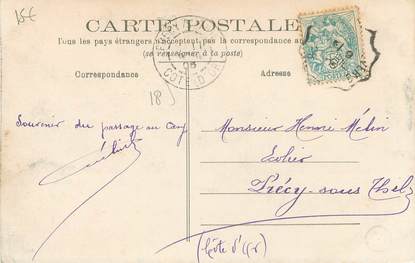 15€
CARTE POSTALE
Tous les pays étrangers n'acceptent pas la correspondance au
(se renseigner à la poste)
Correspondance
Adresse
CÔTE-D'OR
18 J
Souvenir du passage au
Monsieur Henri
Écolier
Précy-sous-Thil
(Côte d'Or)